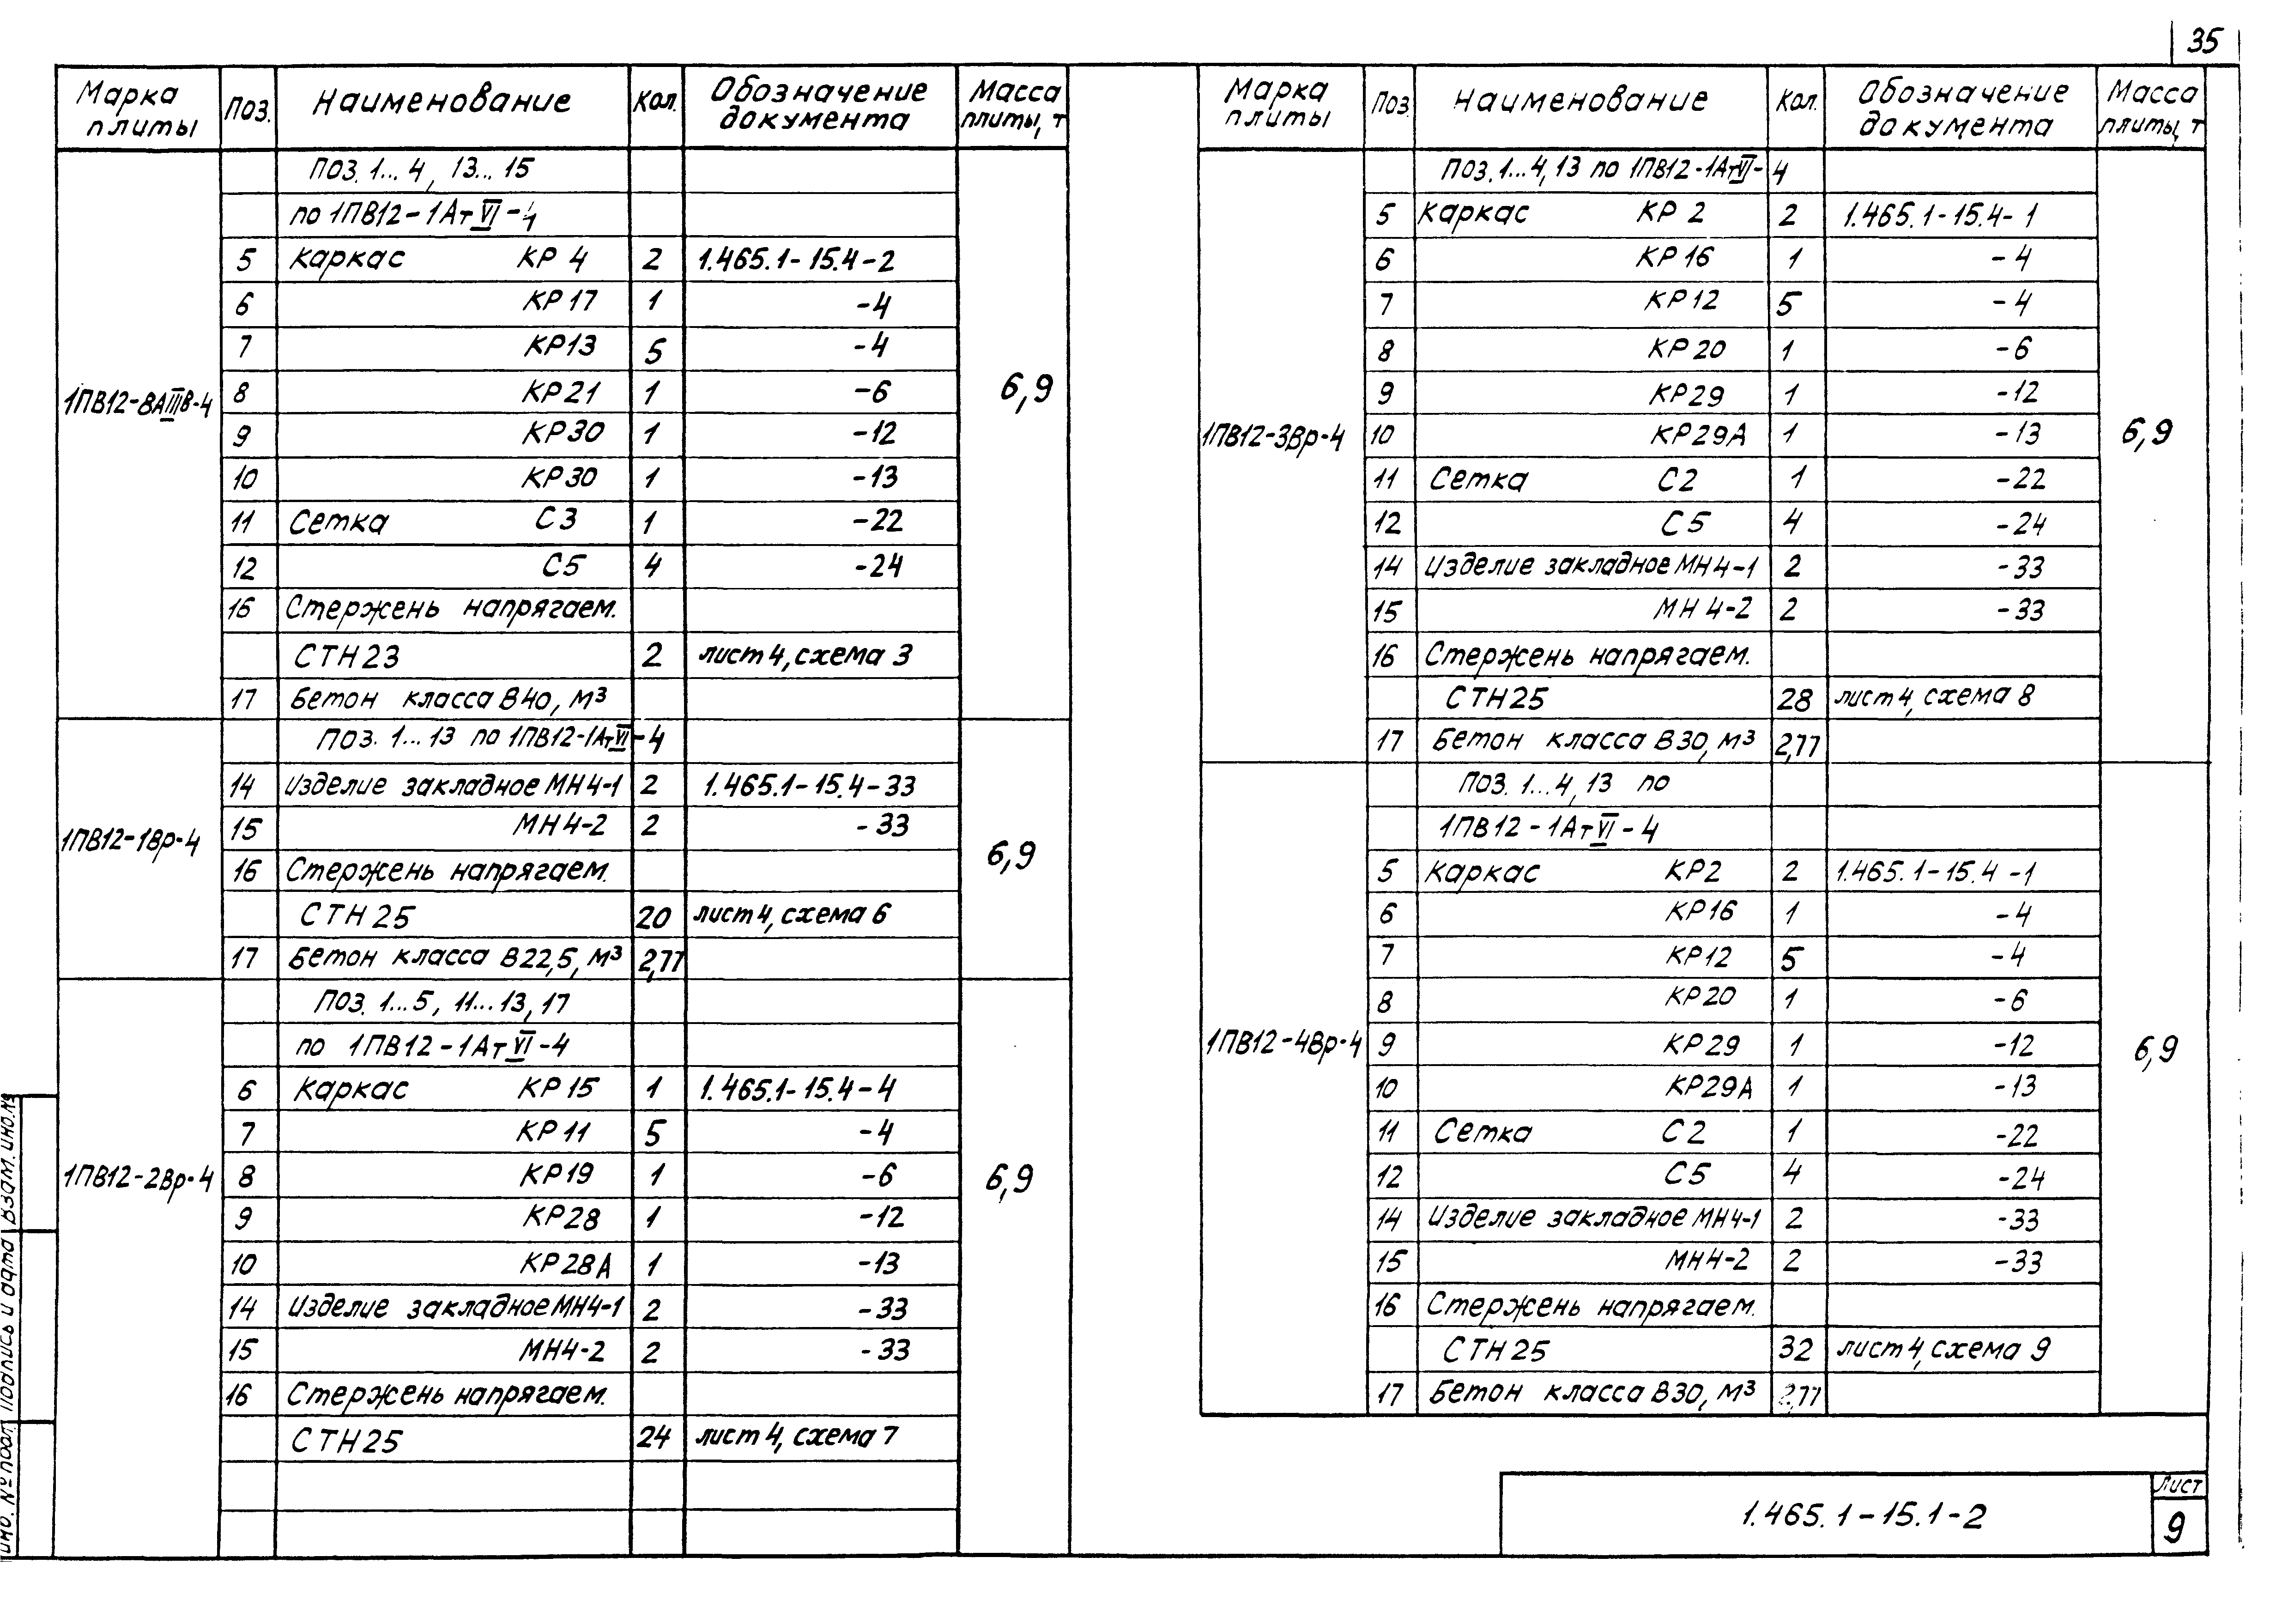 35
Марка плиты Поз. Наименование Кол. Обозначение документа Масса плиты, т
Поз. 1...4, 13...15
по 1ПВ12-1АтVI-4
5 Каркас КР 4 2 1.465.1-15.4-2
6 КР17 1 -4
7 КР13 5 -4
1ПВ12-8АIIIв-4 8 КР21 1 -6 6,9
9 КР30 1 -12
10 КР30 1 -13
11 Сетка С3 1 -22
12 С5 4 -24
16 Стержень напрягаем.
СТН23 2 лист 4, схема 3
17 Бетон класса В40, м³
Поз. 1...13 по 1ПВ12-1АтVI-4
14 Изделие закладное МН4-1 2 1.465.1-15.4-33
1ПВ12-1Вр-4 15 МН4-2 2 -33 6,9
16 Стержень напрягаем.
СТН25 20 лист 4, схема 6
17 Бетон класса В22,5, м³ 2,77
Поз. 1...5, 11...13, 17
по 1ПВ12-1АтVI-4
6 Каркас КР15 1 1.465.1-15.4-4
7 КР11 5 -4
1ПВ12-2Вр-4 8 КР19 1 -6 6,9
9 КР28 1 -12
10 КР28А 1 -13
14 Изделие закладное МН4-1 2 -33
15 МН4-2 2 -33
16 Стержень напрягаем.
СТН25 24 лист 4, схема 7
Марка плиты Поз. Наименование Кол. Обозначение документа Масса плиты, т
Поз. 1...4, 13 по 1ПВ12-1АтVI-4
5 Каркас КР 2 2 1.465.1-15.4-1
6 КР16 1 -4
7 КР12 5 -4
8 КР20 1 -6
9 КР29 1 -12
1ПВ12-3Вр-4 10 КР29А 1 -13 6,9
11 Сетка С2 1 -22
12 С5 4 -24
14 Изделие закладное МН4-1 2 -33
15 МН4-2 2 -33
16 Стержень напрягаем.
СТН25 28 лист 4, схема 8
17 Бетон класса В30, м³ 2,77
Поз. 1...4, 13 по
1ПВ12-1АтVI-4
5 Каркас КР2 2 1.465.1-15.4-1
6 КР16 1 -4
7 КР12 5 -4
8 КР20 1 -6
1ПВ12-4Вр-4 9 КР29 1 -12 6,9
10 КР29А 1 -13
11 Сетка С2 1 -22
12 С5 4 -24
14 Изделие закладное МН4-1 2 -33
15 МН4-2 2 -33
16 Стержень напрягаем.
СТН25 32 лист 4, схема 9
17 Бетон класса В30, м³ 2,77
1.465.1-15.1-2
Лист
9
Инв. № подл. Подпись и дата Взам. инв. №